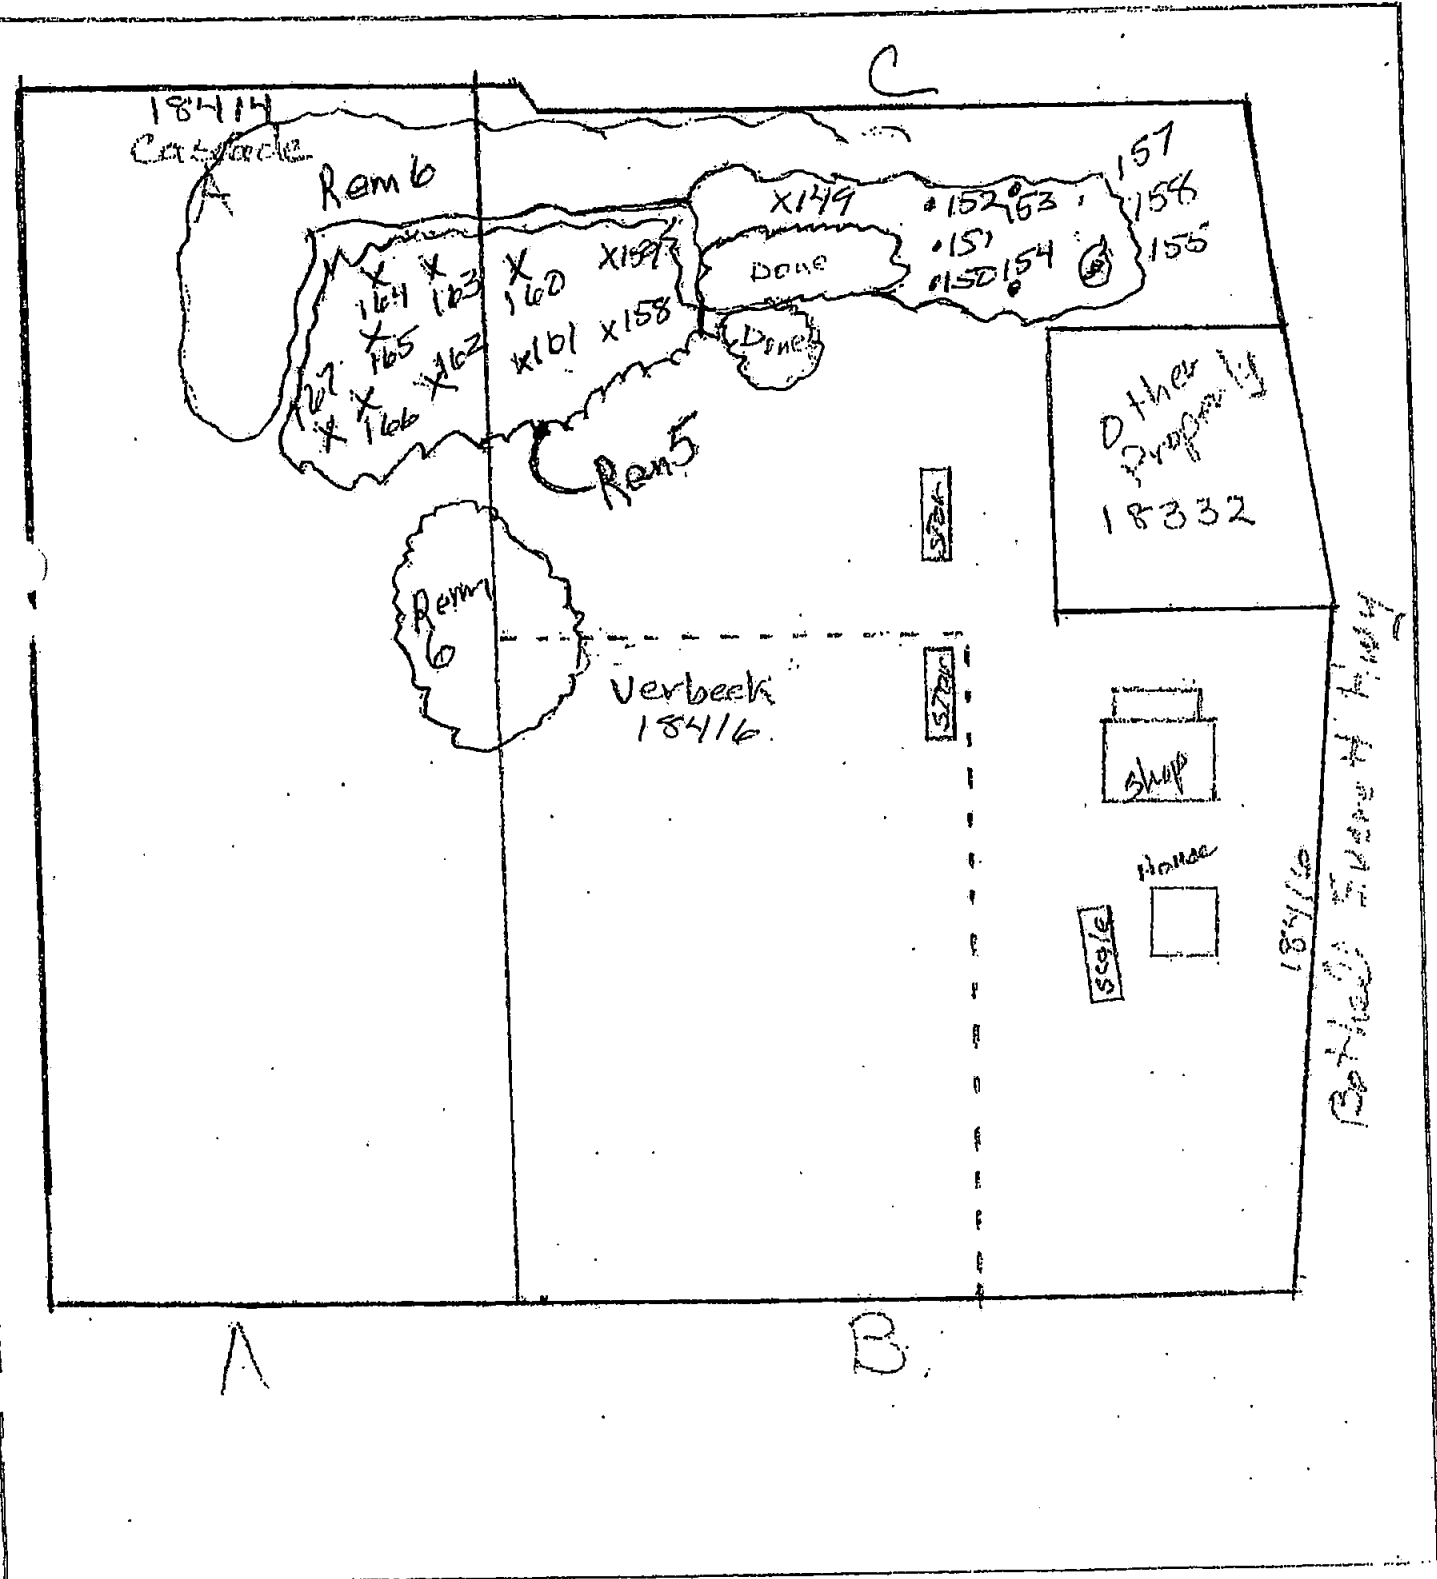 C
18414
Cascade
A
Rem 6
157
158
155
X149
152
153
151
154
150
Done
Done
X159
164
163
160
165
162
X161
X158
167
166
Rem 5
Other
Property
18332
Stor
Rem
6
Verbeek
18416
Stor
Shop
House
Scale
18416
Bothell Everett Hwy
A
B